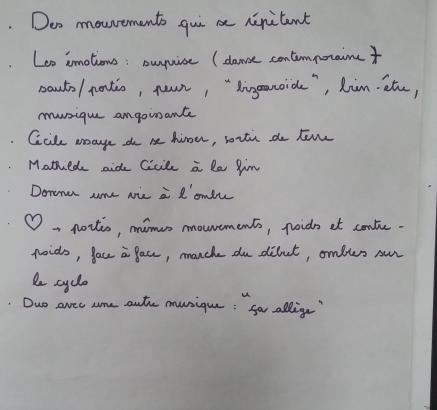 . Des mouvements qui se répètent
. Les émotions : surprise (danse contemporaine +
sauts/portés, peur, "bizaroïde", bien-être,
musique angoissante
. Cécile essaye de se hisser, sortir de terre
. Mathilde aide Cécile à la fin
. Donner une vie à l'ombre
. ♡ → portés, mêmes mouvements, poids et contre-
poids, face à face, marche du début, ombres sur
le cyclo
. Duo avec une autre musique : "ça allège"